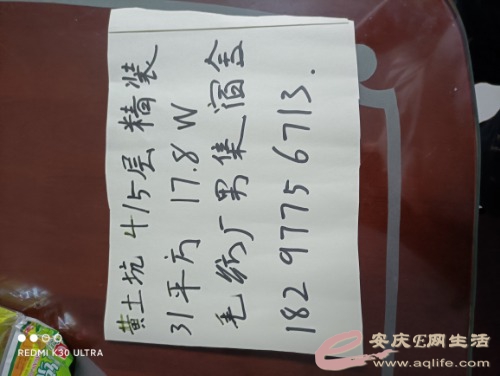 黄土坑 4/5层 精装
31平方 17.8W
毛纺厂男集宿舍
18297756713.
REDMI K30 ULTRA
安庆E网生活
www.aqlife.com